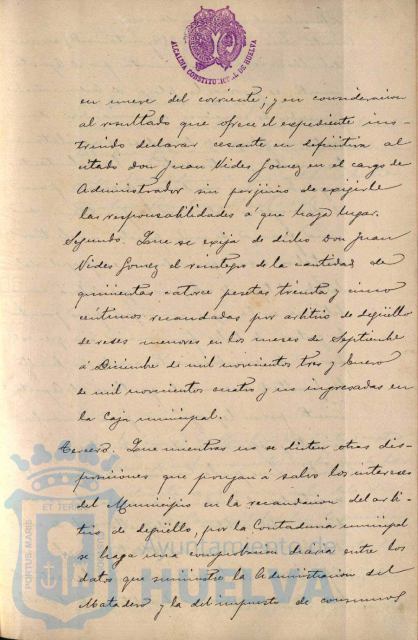 ALCALDIA CONSTITUCIONAL DE HUELVA
en nueve del corriente; y en consideracion
al resultado que ofrece el expediente ins-
truido declarar cesante en definitiva al
citado Don Juan Vides Gomez en el cargo de
Administrador sin perjuicio de exijirle
las responsabilidades á que haya lugar.
Segundo. Que se exija de dicho Don Juan
Vides Gomez el reintegro de la cantidad de
quinientas catorce pesetas treinta y cinco
centimos recaudadas por arbitrio de degüello
de reses menores en los meses de Septiembre
á Diciembre de mil novecientos tres y Enero
de mil novecientos cuatro y no ingresadas en
la Caja municipal.
Tercero. Que mientras no se dicten otras dis-
posiciones que pongan á salvo los intereses
del Municipio en la recaudacion del arbi-
trio de degüello, por la Contaduria municipal
se haga una comprobacion diaria entre los
datos que suministre la Administracion del
Matadero y la del impuesto de consumos
PORTUS MARIS ET TERRÆ
Ayuntamiento de
HUELVA